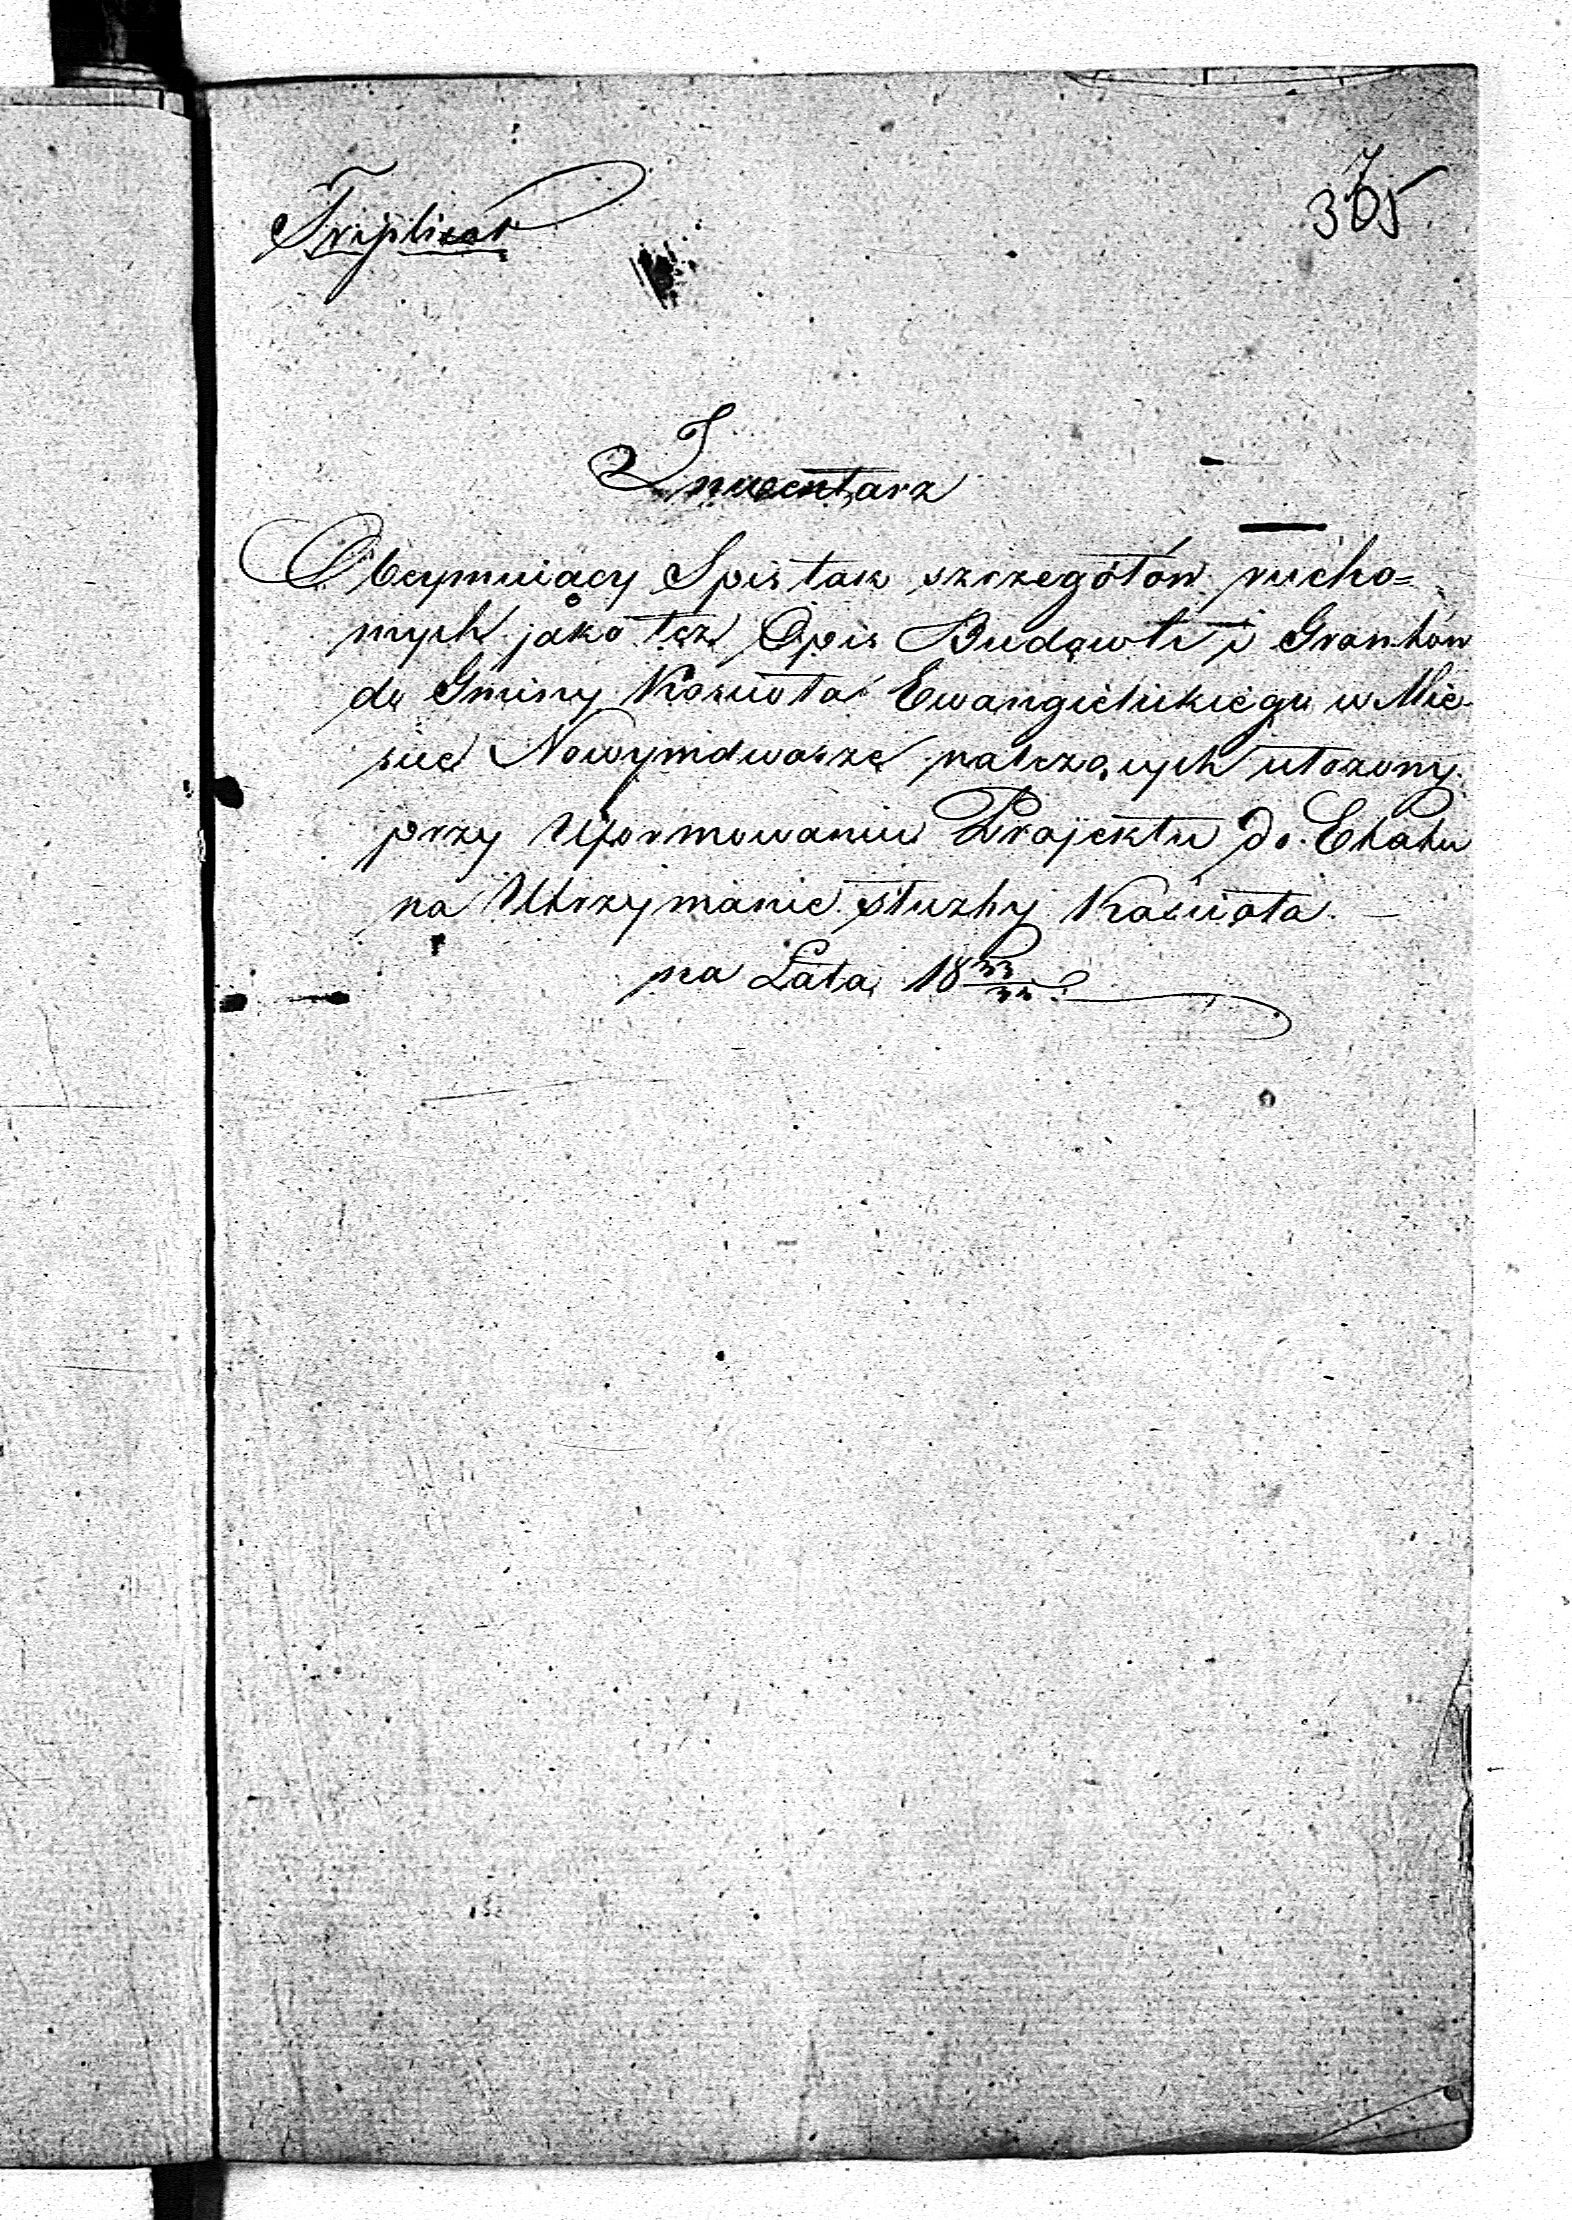 Triplicat
365
Inwentarz
Obeymuiący Spis tak szczegółów rucho=
mych jako też Opis Budowli i Grontów
do Gminy Kościoła Ewangielickiego w Mie-
ście Nowymdworze należących ułożony
przy Uformowaniu Projektu do Etatu
na Utrzymanie służby Kościoła. —
na Lata 18 33/